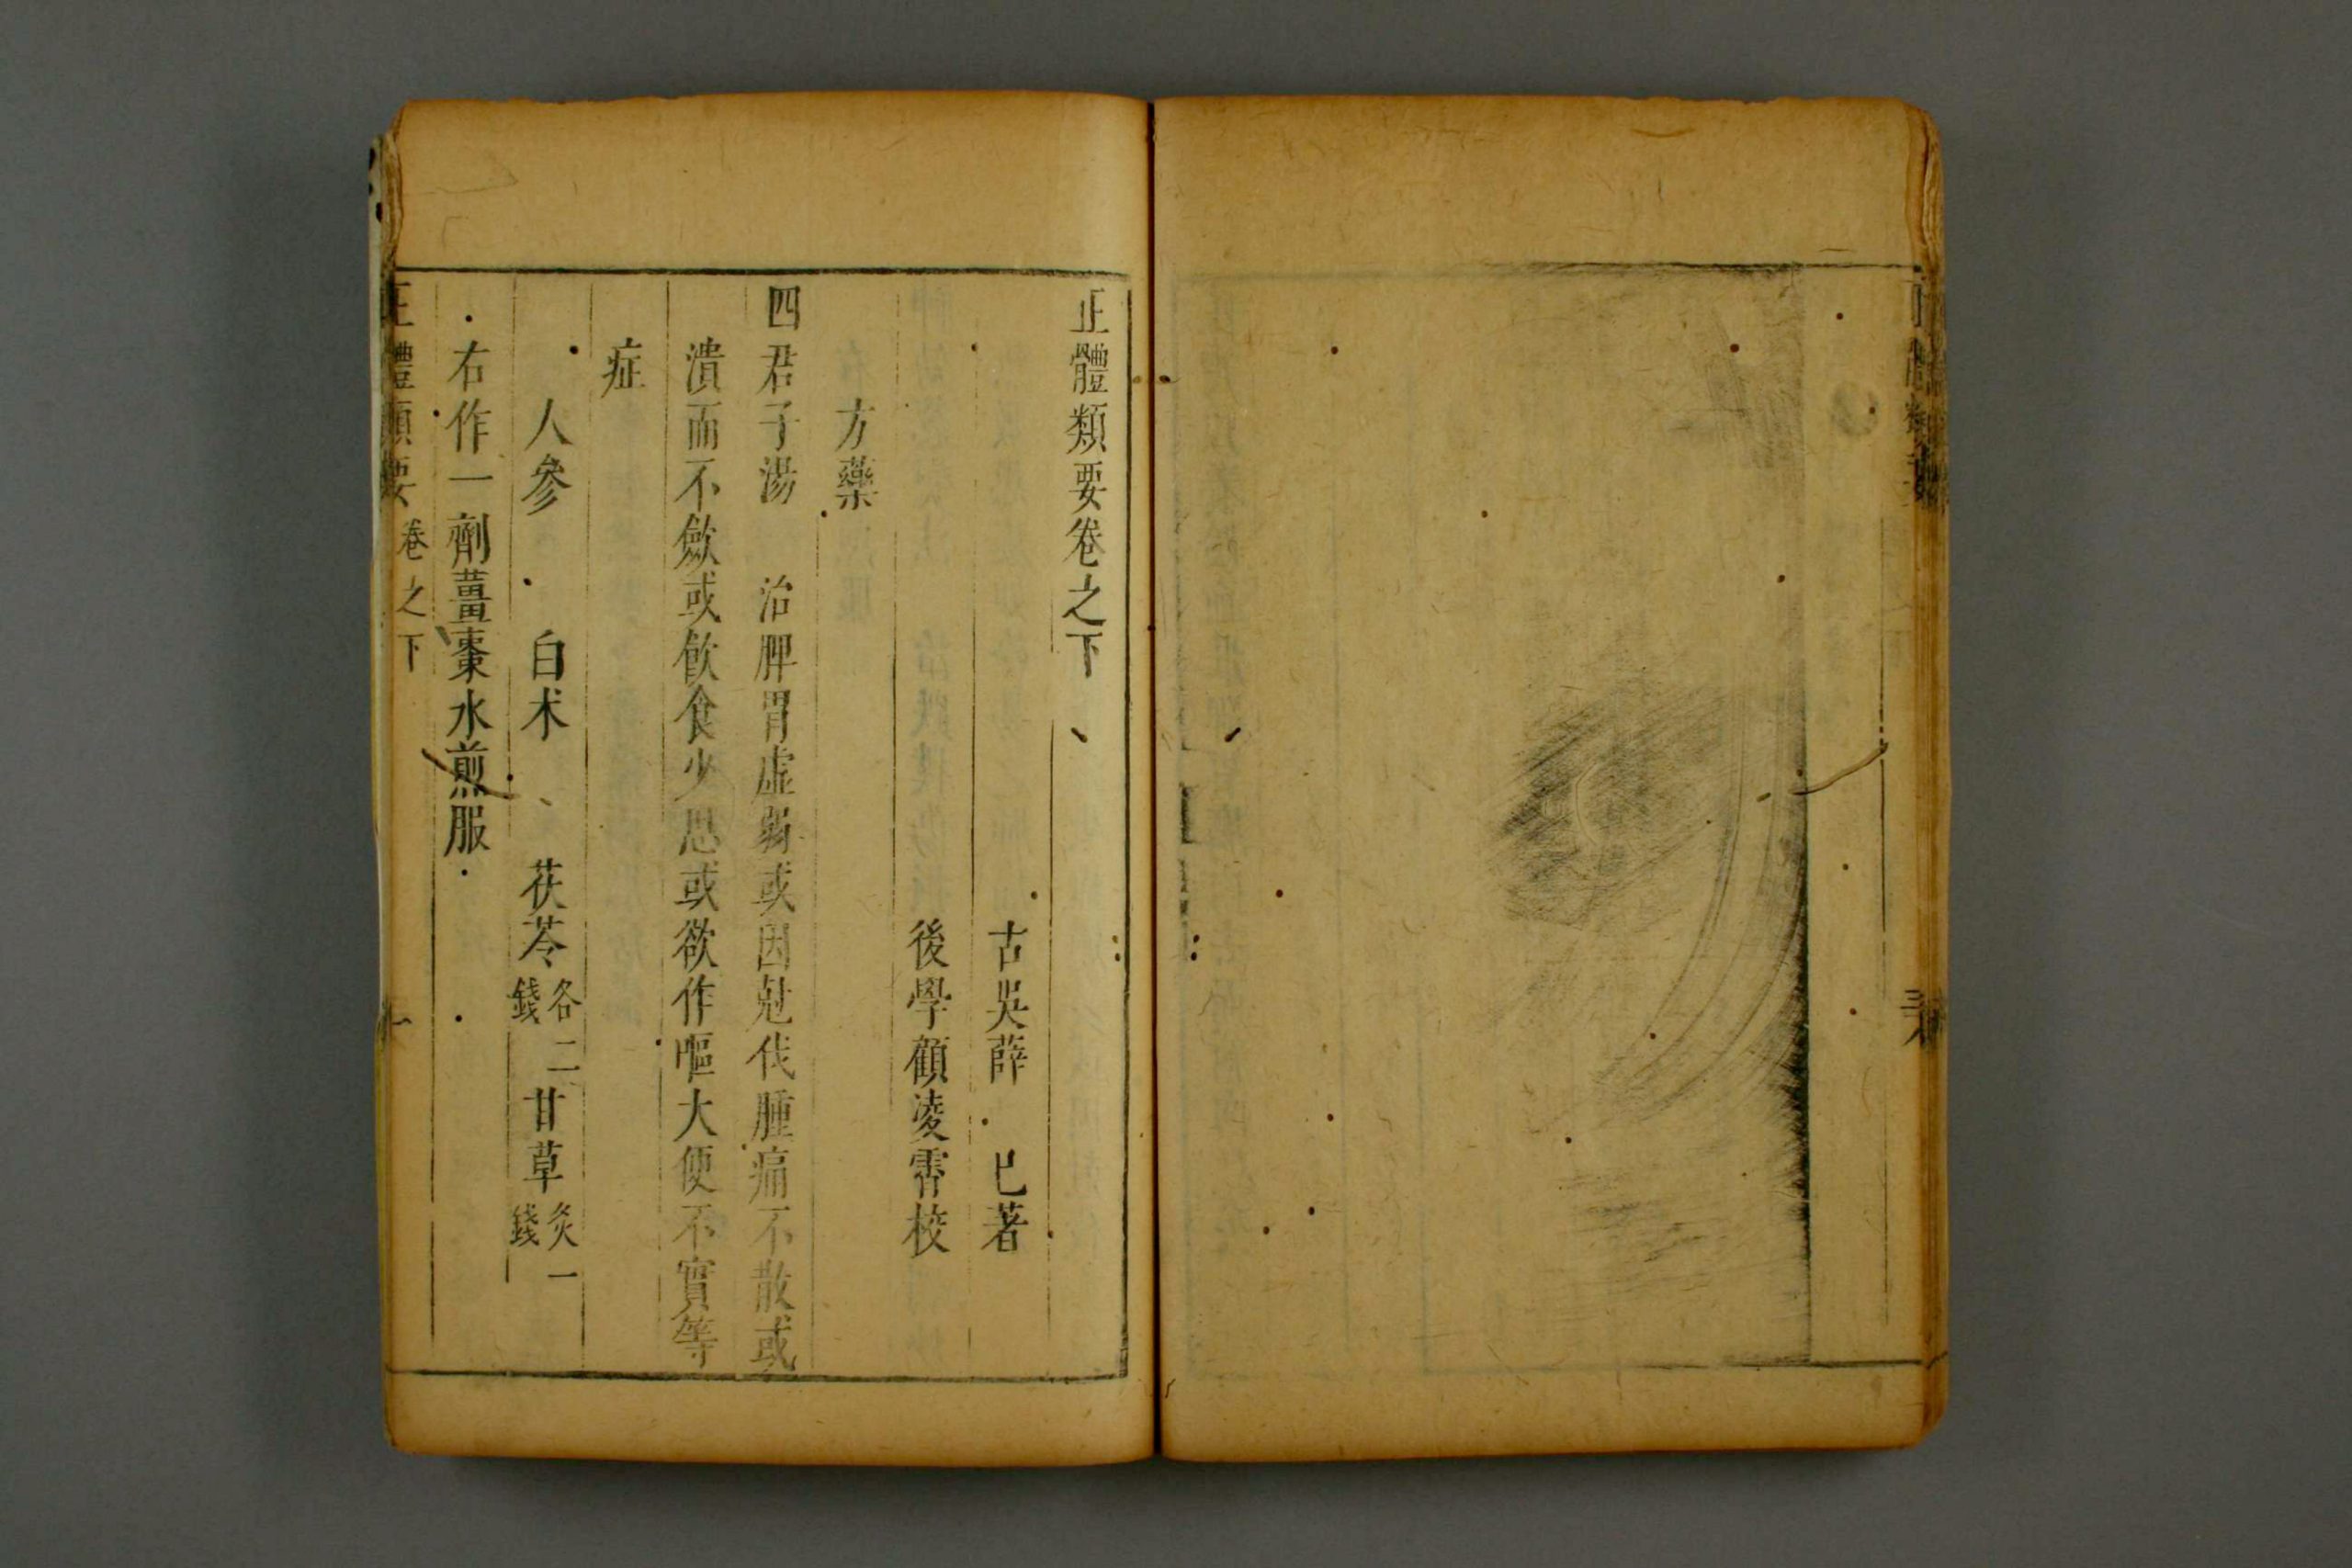 正體類要卷之下
古吳薛 己著
後學顧凌霄校
方藥
四君子湯 治脾胃虛弱或因尅伐腫痛不散或
潰而不斂或飲食少思或欲作嘔大便不實等
症
人參 白术 茯苓各二錢 甘草炙一錢
右作一劑薑棗水煎服
正體類要 卷之下 一